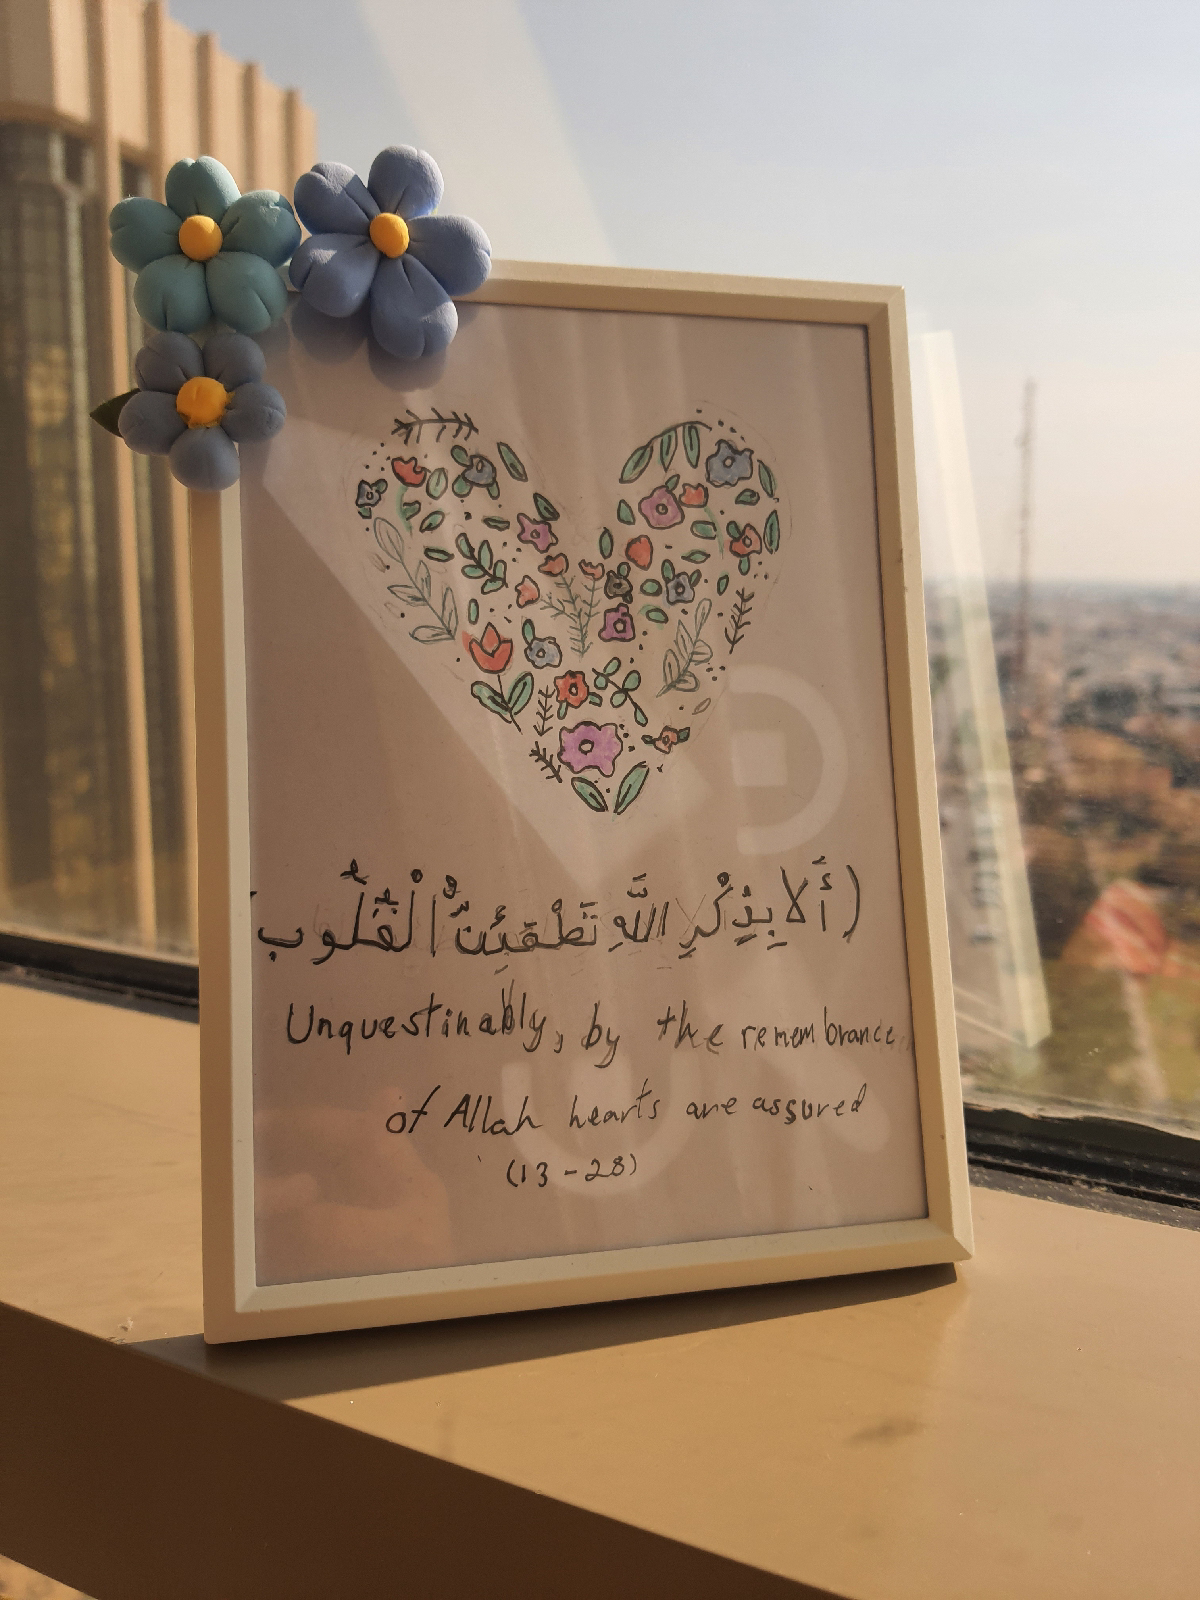 (أَلَا بِذِكْرِ اللَّهِ تَطْمَئِنُّ الْقُلُوب
Unquestinably, by the remembrance
of Allah hearts are assured
(13-28)